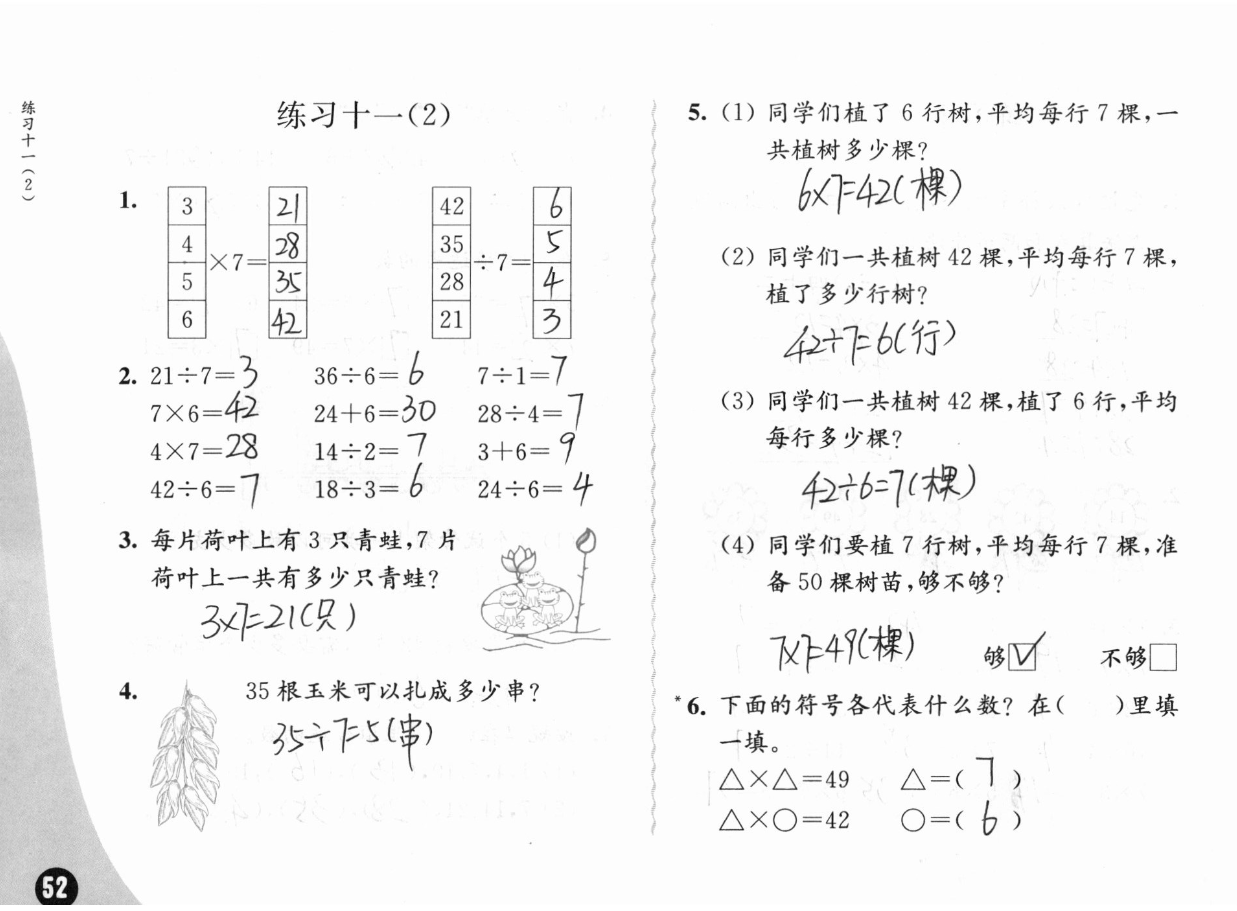 练习十一(2)
练习十一(2)
1.
3
4
5
6
×7=
21
28
35
42
42
35
28
21
÷7=
6
5
4
3
2. 21÷7=3 36÷6=6 7÷1=7
7×6=42 24+6=30 28÷4=7
4×7=28 14÷2=7 3+6=9
42÷6=7 18÷3=6 24÷6=4
3. 每片荷叶上有3只青蛙,7片
荷叶上一共有多少只青蛙?
3×7=21(只)
4. 35根玉米可以扎成多少串?
35÷7=5(串)
52
5. (1) 同学们植了6行树,平均每行7棵,一
共植树多少棵?
6×7=42(棵)
(2) 同学们一共植树42棵,平均每行7棵,
植了多少行树?
42÷7=6(行)
(3) 同学们一共植树42棵,植了6行,平均
每行多少棵?
42÷6=7(棵)
(4) 同学们要植7行树,平均每行7棵,准
备50棵树苗,够不够?
7×7=49(棵) 够☑ 不够□
*6. 下面的符号各代表什么数? 在( )里填
一填。
△×△=49 △=(7)
△×○=42 ○=(6)